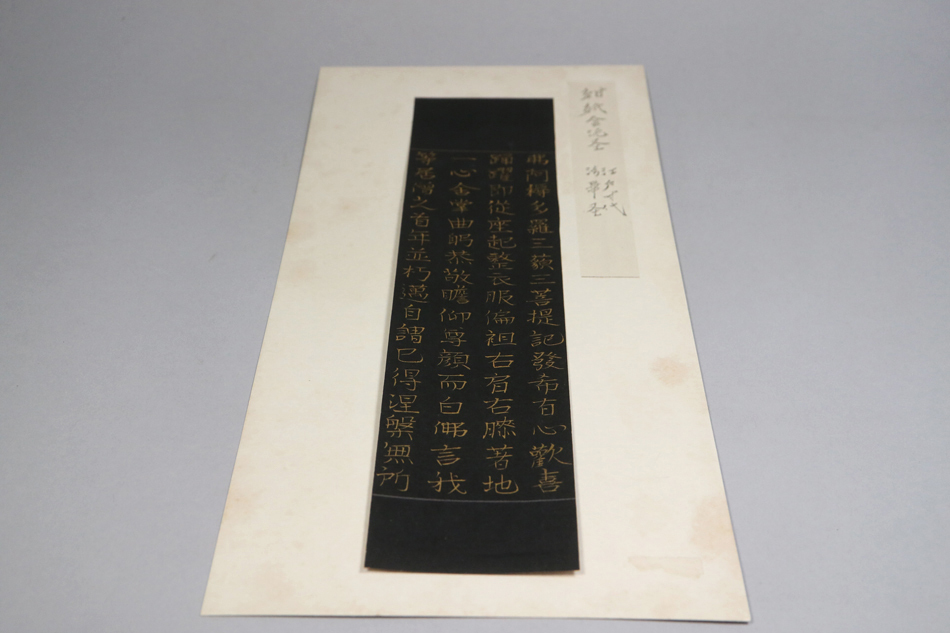 紺紙金泥圣
江戸时代
法華圣
弗阿耨多羅三藐三菩提記發希有心歡喜
踊躍即從座起整衣服偏袒右肩右膝著地
一心合掌曲躬恭敬瞻仰尊顏而白佛言我
等居僧之首年並朽邁自謂已得涅槃無所